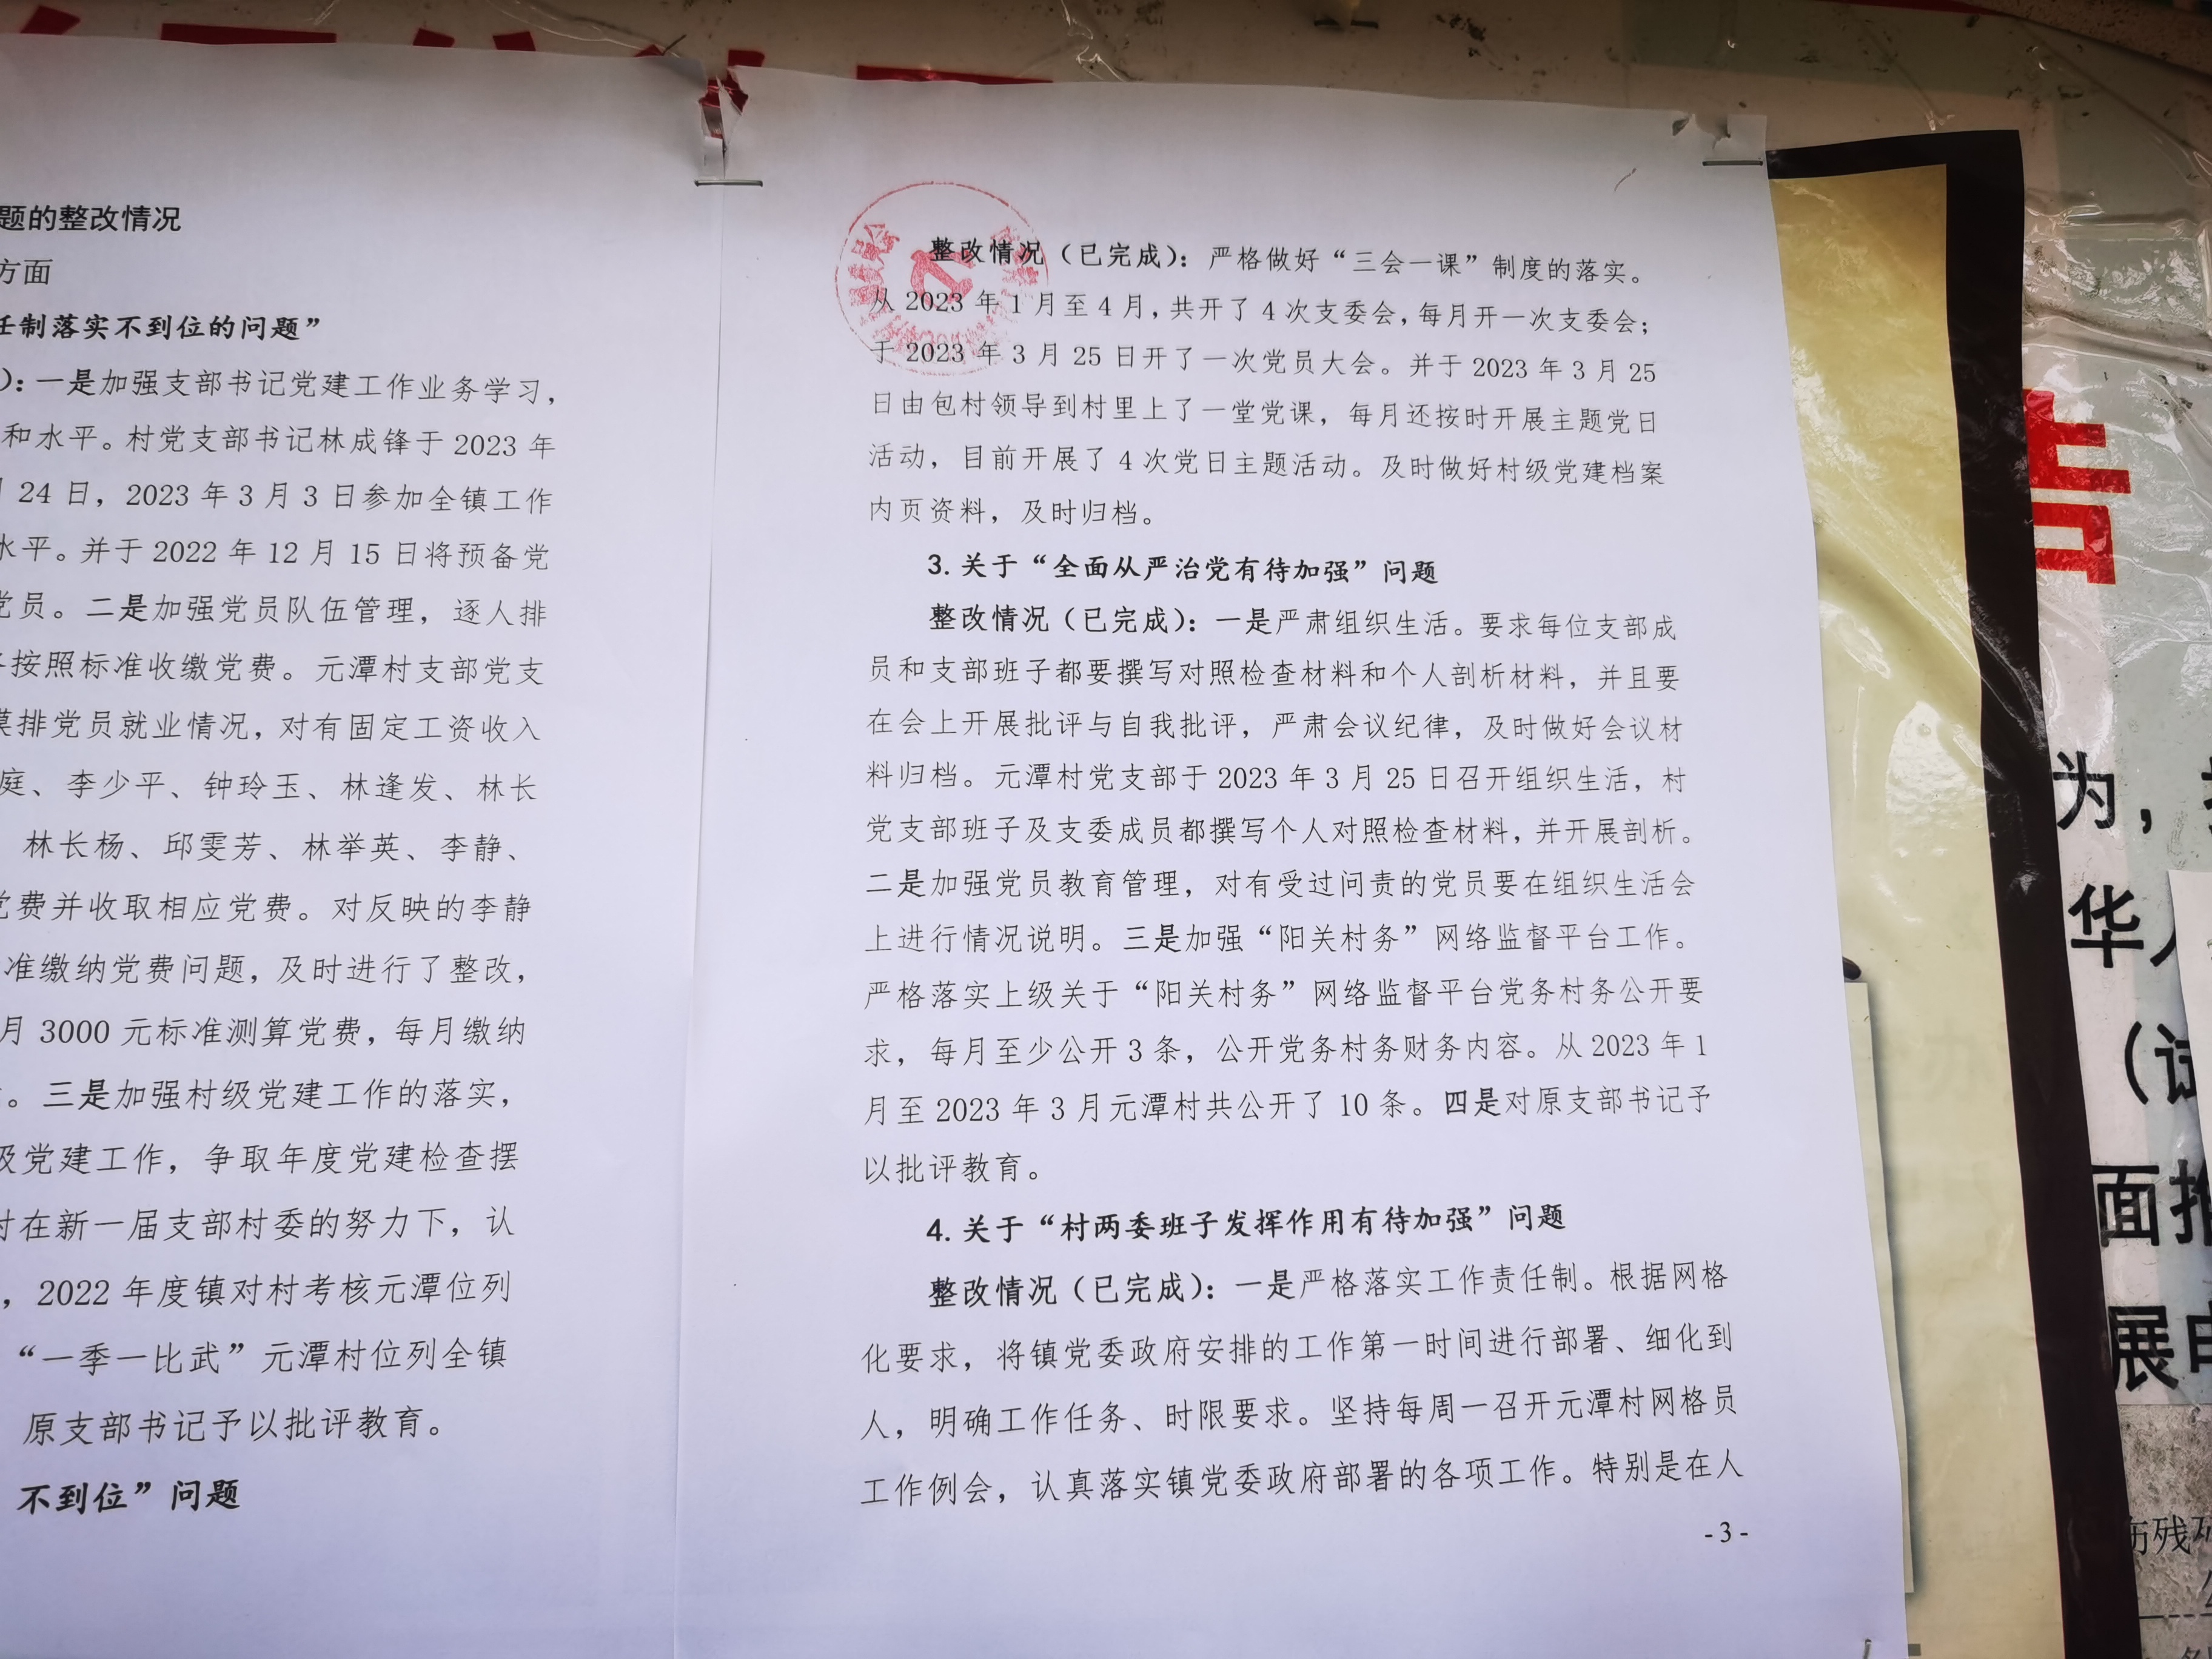 题的整改情况
方面
任制落实不到位的问题”
）：一是加强支部书记党建工作业务学习，
和水平。村党支部书记林成锋于 2023 年
月 24 日，2023 年 3 月 3 日参加全镇工作
水平。并于 2022 年 12 月 15 日将预备党
党员。二是加强党员队伍管理，逐人排
按照标准收缴党费。元潭村支部党支
摸排党员就业情况，对有固定工资收入
庭、李少平、钟玲玉、林逢发、林长
林长杨、邱雯芳、林举英、李静、
党费并收取相应党费。对反映的李静
准缴纳党费问题，及时进行了整改，
月 3000 元标准测算党费，每月缴纳
。三是加强村级党建工作的落实，
级党建工作，争取年度党建检查摆
村在新一届支部村委的努力下，认
，2022 年度镇对村考核元潭位列
“一季一比武”元潭村位列全镇
原支部书记予以批评教育。
不到位”问题
整改情况（已完成）：严格做好“三会一课”制度的落实。
从 2023 年 1 月至 4 月，共开了 4 次支委会，每月开一次支委会；
于 2023 年 3 月 25 日开了一次党员大会。并于 2023 年 3 月 25
日由包村领导到村里上了一堂党课，每月还按时开展主题党日
活动，目前开展了 4 次党日主题活动。及时做好村级党建档案
内页资料，及时归档。
3.关于“全面从严治党有待加强”问题
整改情况（已完成）：一是严肃组织生活。要求每位支部成
员和支部班子都要撰写对照检查材料和个人剖析材料，并且要
在会上开展批评与自我批评，严肃会议纪律，及时做好会议材
料归档。元潭村党支部于 2023 年 3 月 25 日召开组织生活，村
党支部班子及支委成员都撰写个人对照检查材料，并开展剖析。
二是加强党员教育管理，对有受过问责的党员要在组织生活会
上进行情况说明。三是加强“阳关村务”网络监督平台工作。
严格落实上级关于“阳关村务”网络监督平台党务村务公开要
求，每月至少公开 3 条，公开党务村务财务内容。从 2023 年 1
月至 2023 年 3 月元潭村共公开了 10 条。四是对原支部书记予
以批评教育。
4.关于“村两委班子发挥作用有待加强”问题
整改情况（已完成）：一是严格落实工作责任制。根据网格
化要求，将镇党委政府安排的工作第一时间进行部署、细化到
人，明确工作任务、时限要求。坚持每周一召开元潭村网格员
工作例会，认真落实镇党委政府部署的各项工作。特别是在人
- 3 -
告
为，
华人
（试
面推
展
伤残